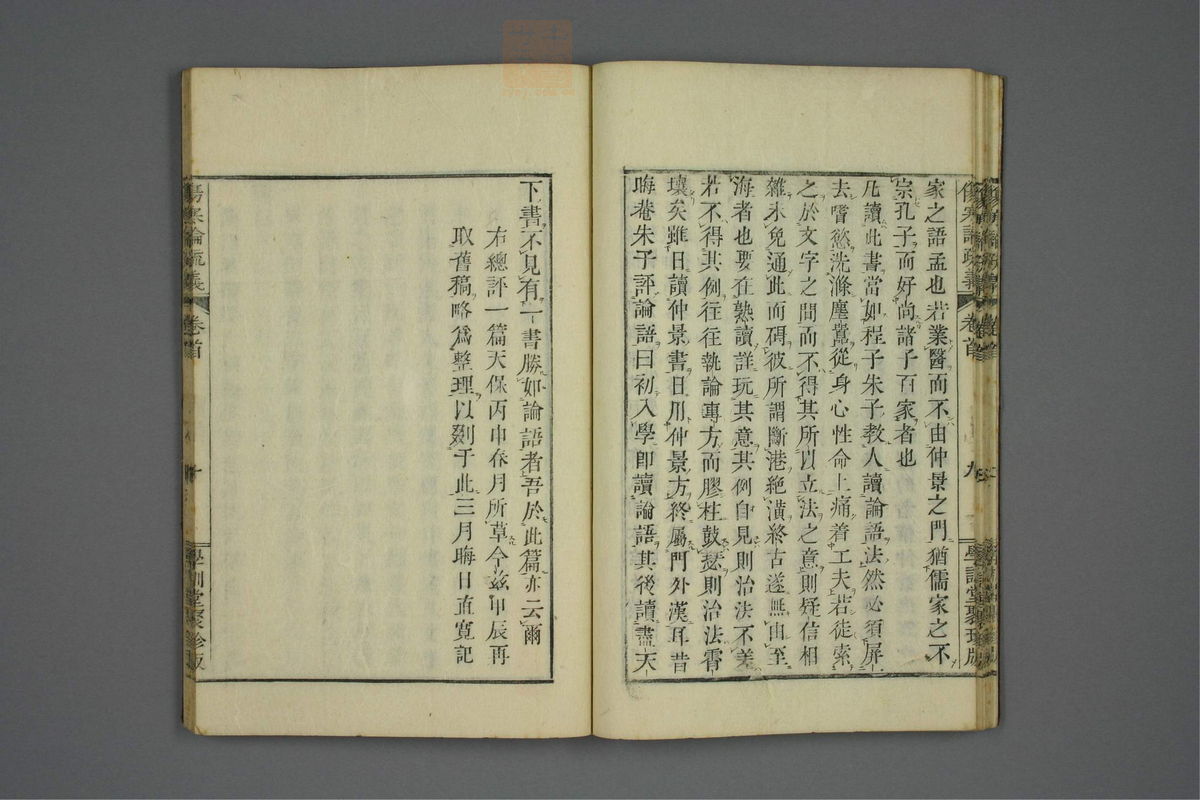 家之語孟也若業醫而不由仲景之門猶儒家之不
宗孔子而好尚諸子百家者也
凡讀此書當如程子朱子教人讀論語法然必須屏
去嗜慾洗滌塵囂從身心性命上痛着工夫若徒索
之於文字之間而不得其所以立法之意則疑信相
雜未免通此而碍彼所謂斷港絶潢終古遂無由至
海者也要在熟讀詳玩其意其例自見則治決不差
若不得其例往往執論專方而膠柱鼓瑟則治法霄
壤矣雖日讀仲景書日用仲景方終屬門外漢耳昔
晦菴朱子評論語曰初入學卽讀論語其後讀盡天
傷寒論疏義
卷首
九
學訓堂聚珍版
下書不見有一書勝如論語者吾於此篇亦云爾
右總評一篇天保丙申春月所草今茲甲辰再
取舊稿略爲整理以剟于此三月晦日直寬記
傷寒論疏義
卷首
十
學訓堂聚珍版